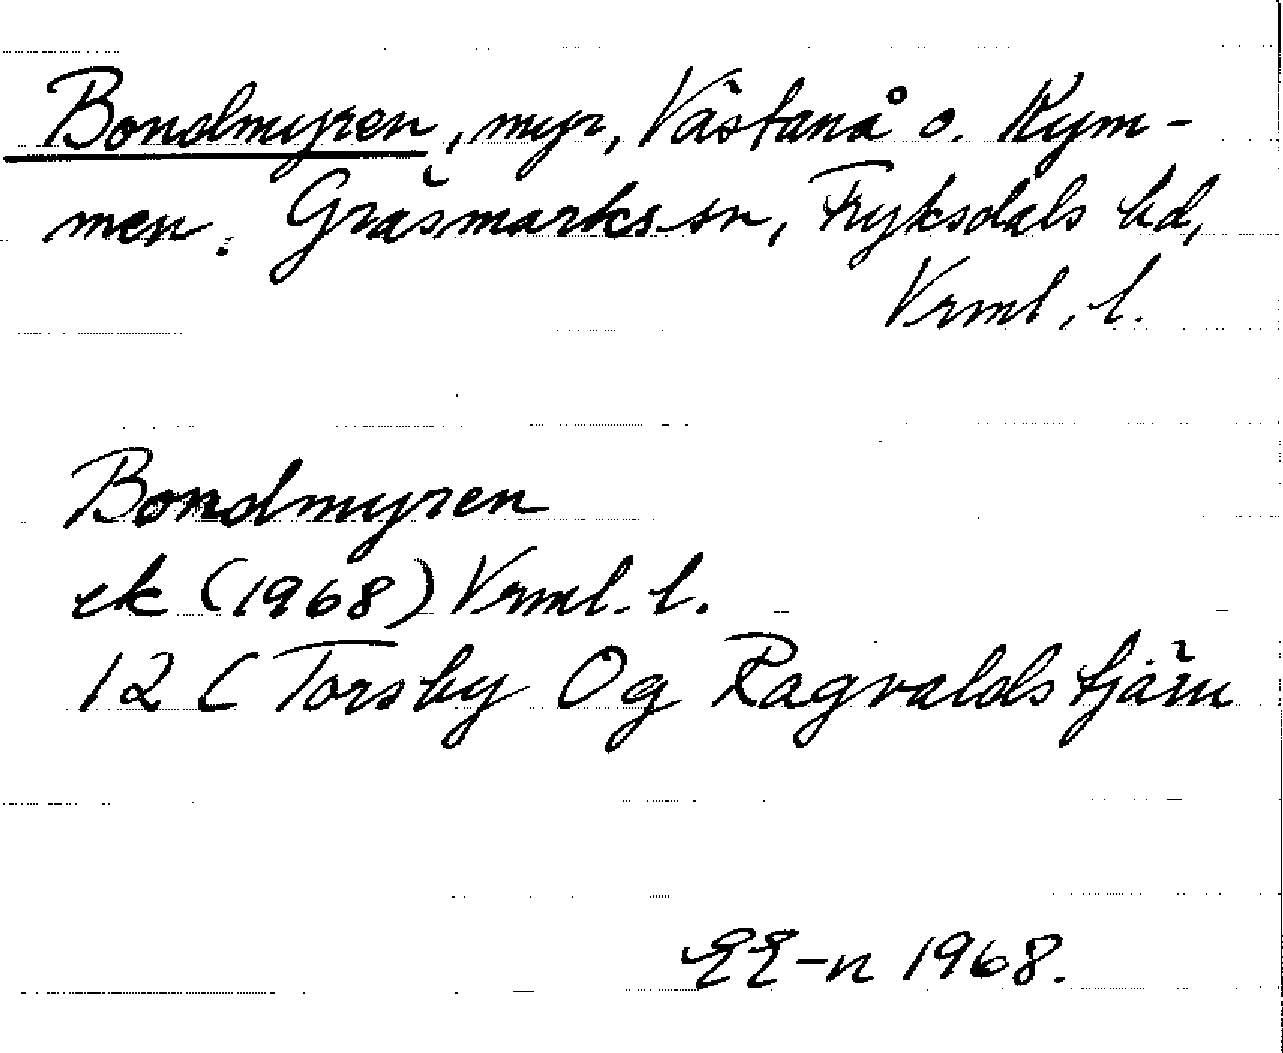 Bondmyren, myr, Västanå o. Kym-
men. Gräsmarks sn, Fryksdals hd,
Vrml. l.
Bondmyren
ek (1968) Vrml. l.
12 C Torsby Og Ragvaldstjärn
EE-n 1968.